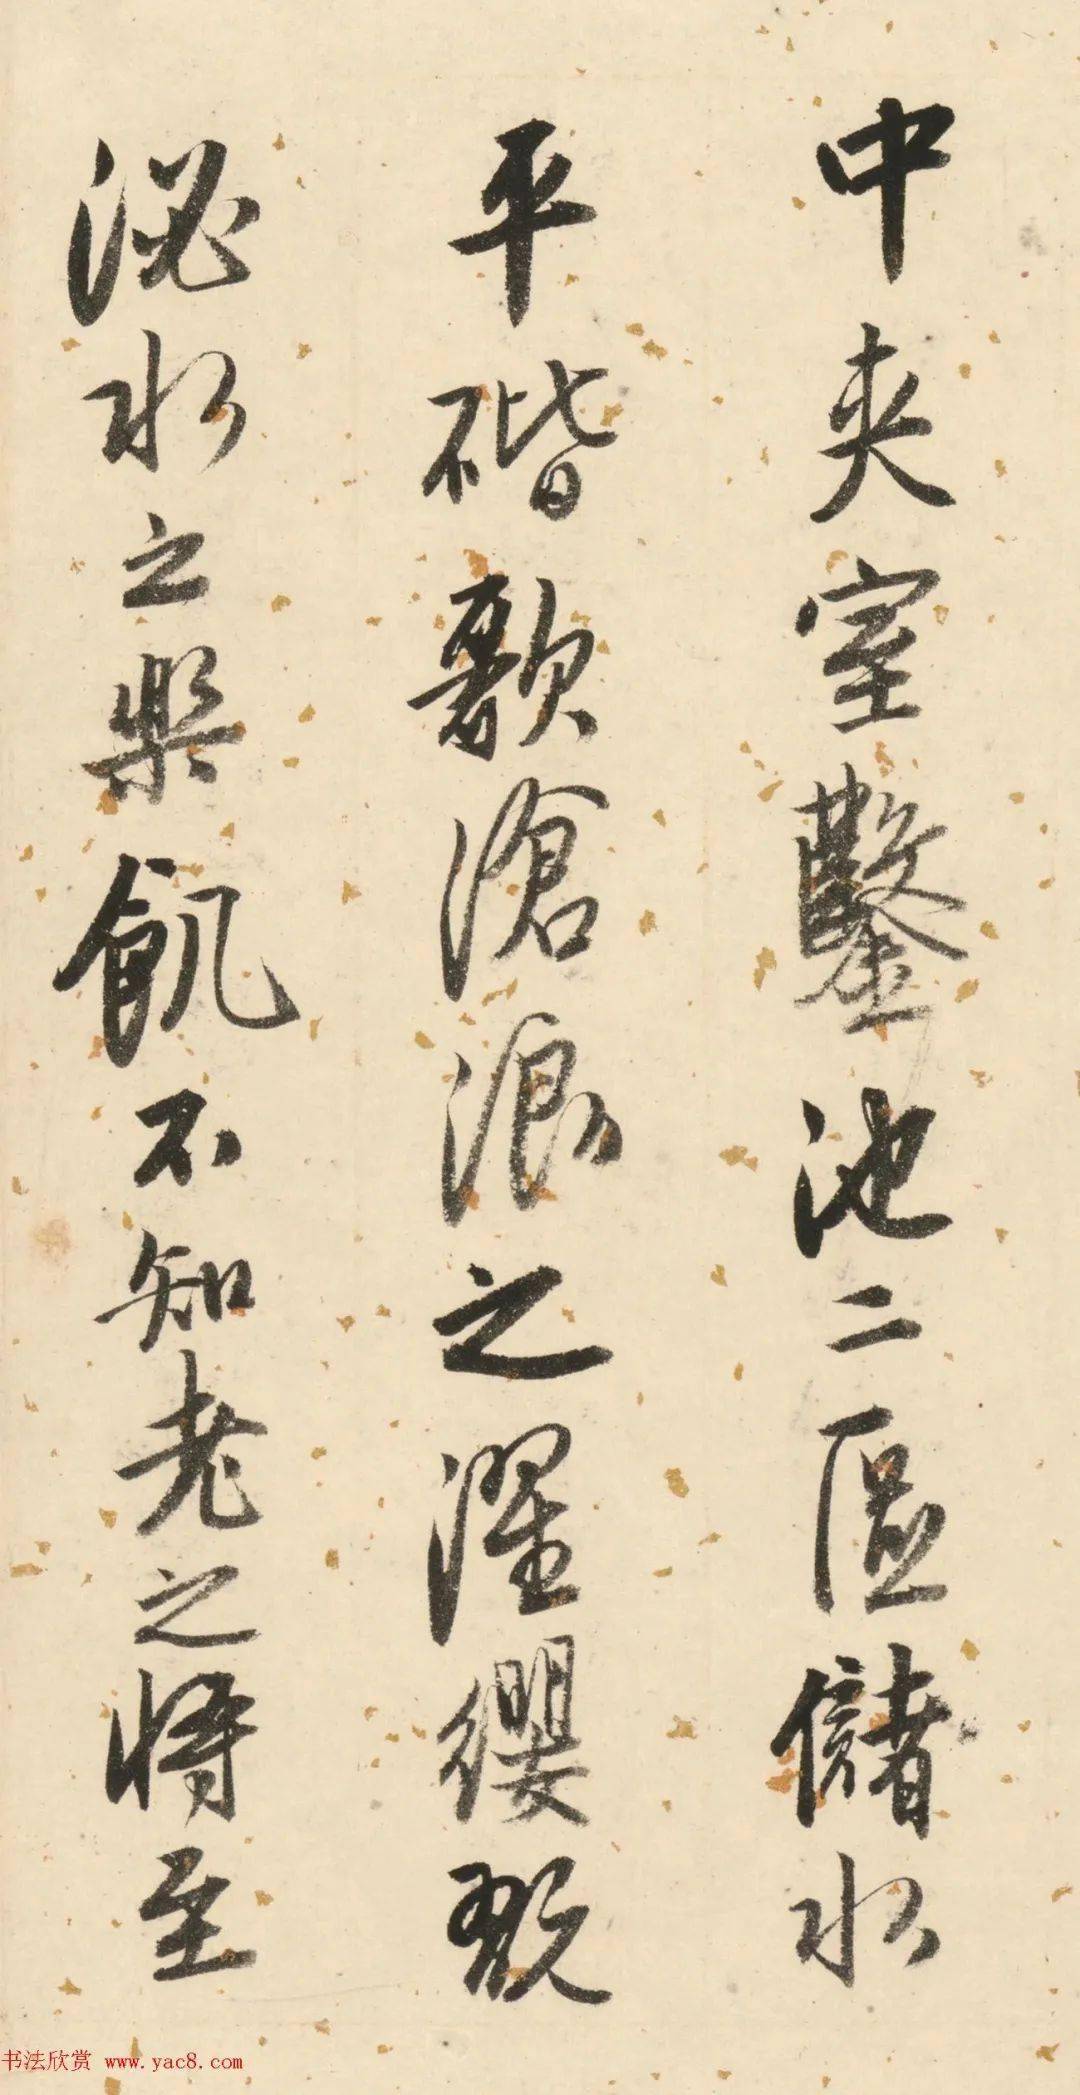 中夹室鑿池二區儲水
平碏歌滄浪之濯纓翫
泌水之樂飢不知老之將至
书法欣赏 www.yac8.com